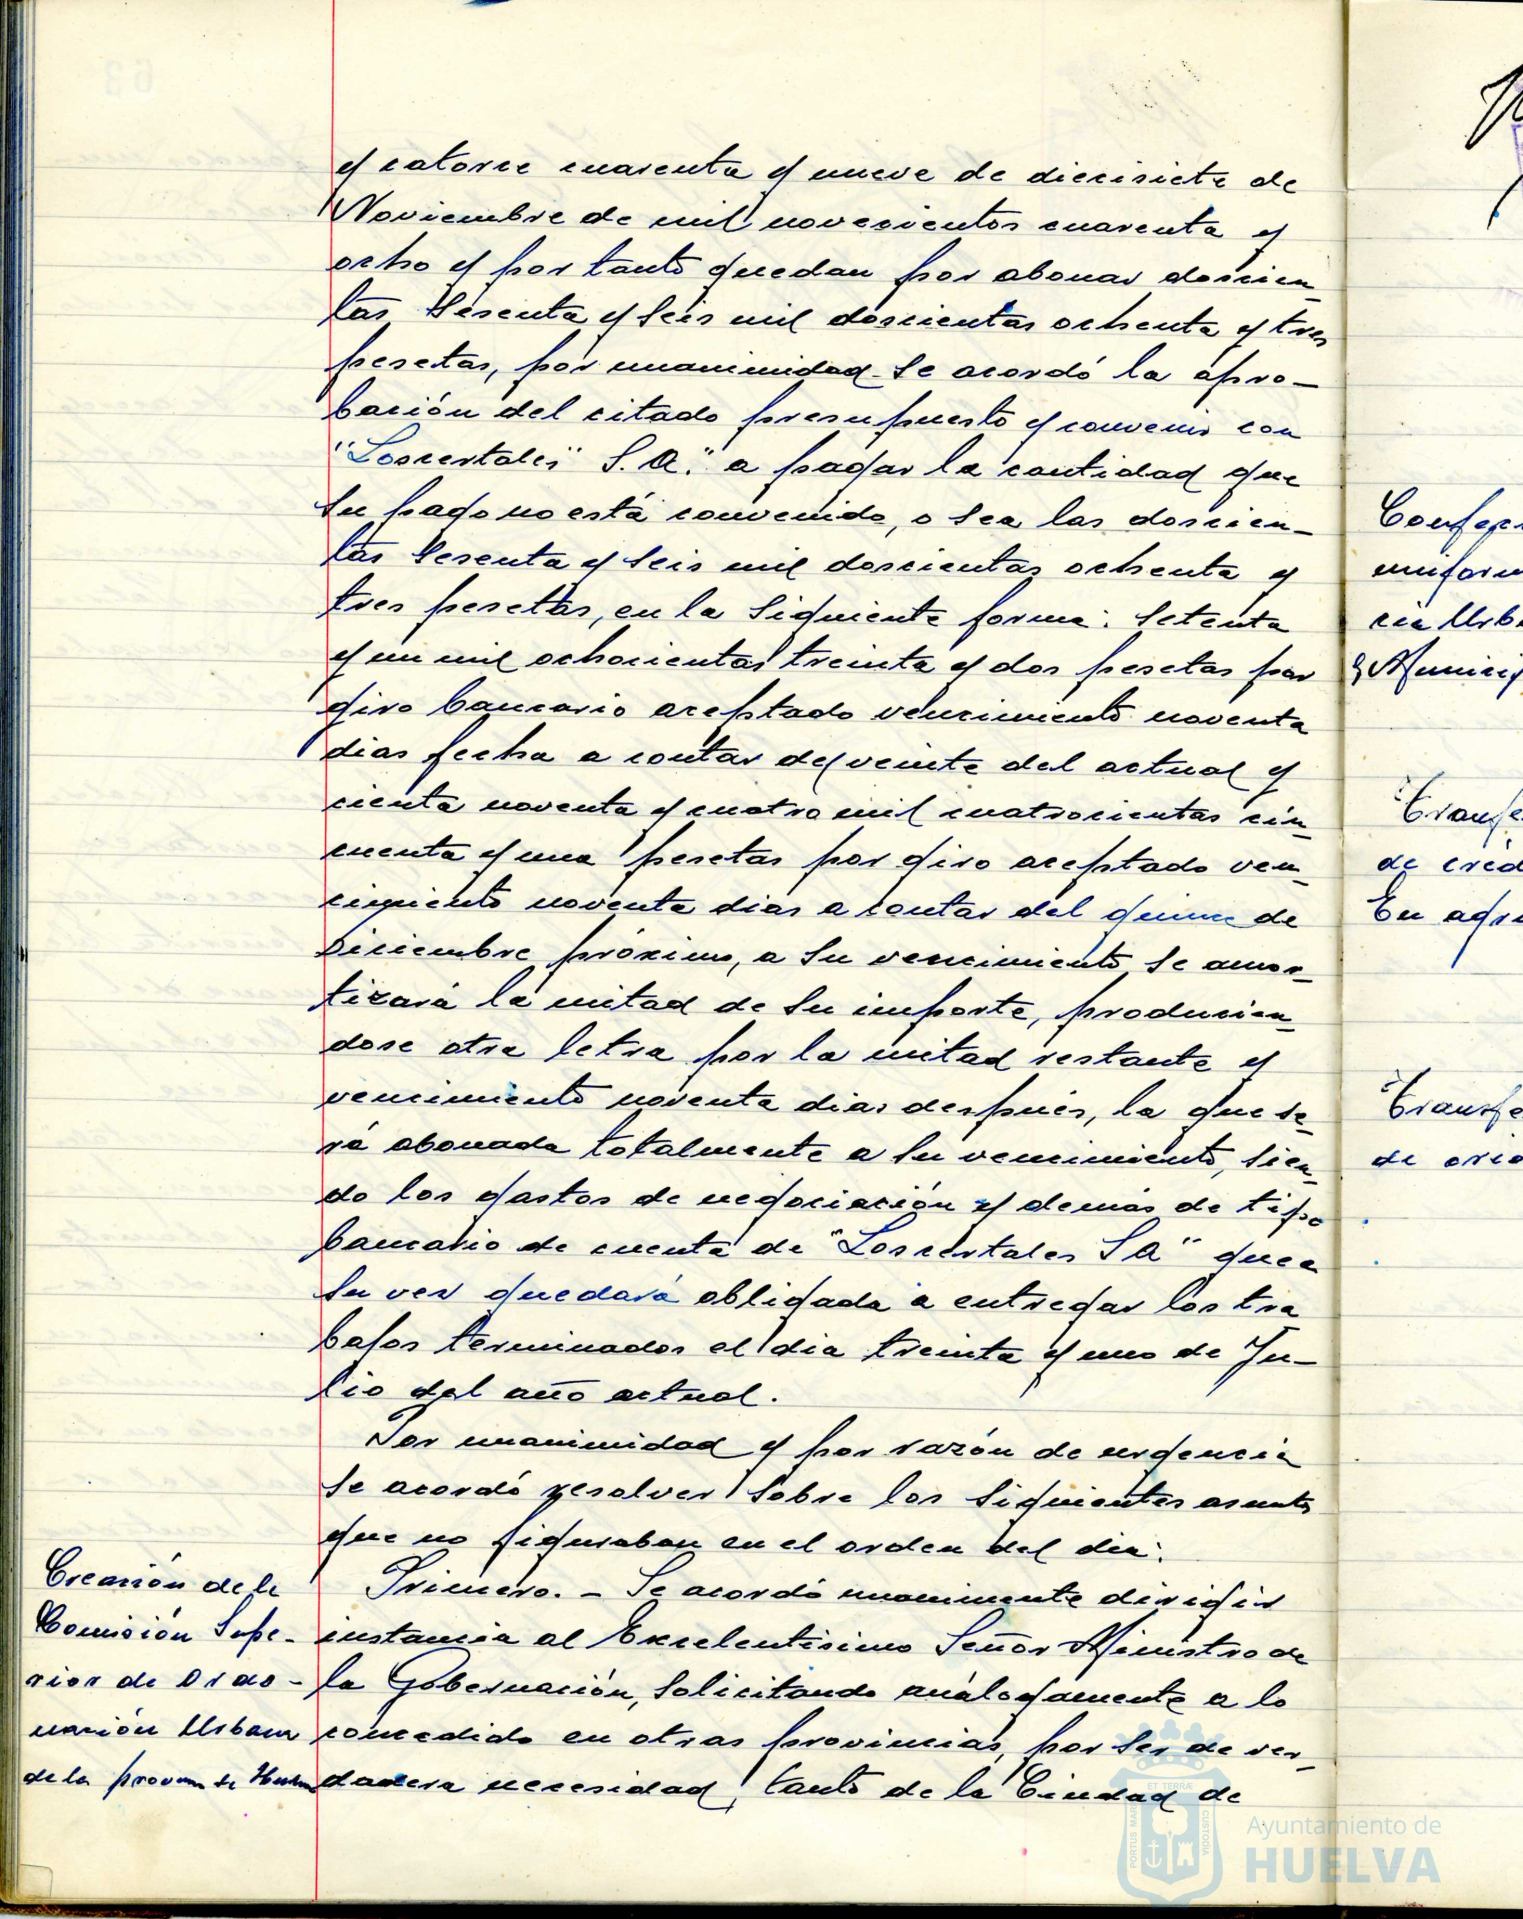 y catorce cuarenta y nueve de diecisiete de
Noviembre de mil novecientos cuarenta y
ocho y por tanto quedan por abonar doscien-
tas sesenta y seis mil doscientas ochenta y tres
pesetas, por unanimidad se acordó la apro-
bación del citado presupuesto y convenir con
"Loscertales" S.A." a pagar la cantidad que
su pago no está convenido, o sea las doscien-
tas sesenta y seis mil doscientas ochenta y
tres pesetas, en la siguiente forma: setenta
y un mil ochocientas treinta y dos pesetas por
giro bancario aceptado vencimiento noventa
dias fecha a contar del veinte del actual y
cienta noventa y cuatro mil cuatrocientas cin-
cuenta y una pesetas por giro aceptado ven-
cimiento noventa dias a contar del quince de
Diciembre próximo, a su vencimiento se amor-
tizará la mitad de su importe, producien-
dose otra letra por la mitad restante y
vencimiento noventa dias después, la que se-
rá abonada totalmente a su vencimiento, sien-
do los gastos de negociación y demás de tipo
bancario de cuenta de "Loscertales S A" que a
su vez quedará obligada a entregar los tra
bajos terminados el dia treinta y uno de Ju-
lio del año actual.
Por unanimidad y por razón de urgencia
se acordó resolver sobre los siguientes asuntos
que no figuraban en el orden del dia:
Creación de la
Comisión Supe-
rior de Orde-
nación Urbana
de la provincia de Huelva
Primero. - Se acordó unanimente dirigir
instancia al Excelentísimo Señor Ministro de
la Gobernación, solicitando análogamente a lo
concedido en otras provincias, por ser de ver-
dadera necesidad, tanto de la Ciudad de
uniform
cia Urb
y Munici
Transfe
de créd
En agr
Transfe
de
PORTUS MARIS ET TERRAE CUSTODIA
Ayuntamiento de
HUELVA